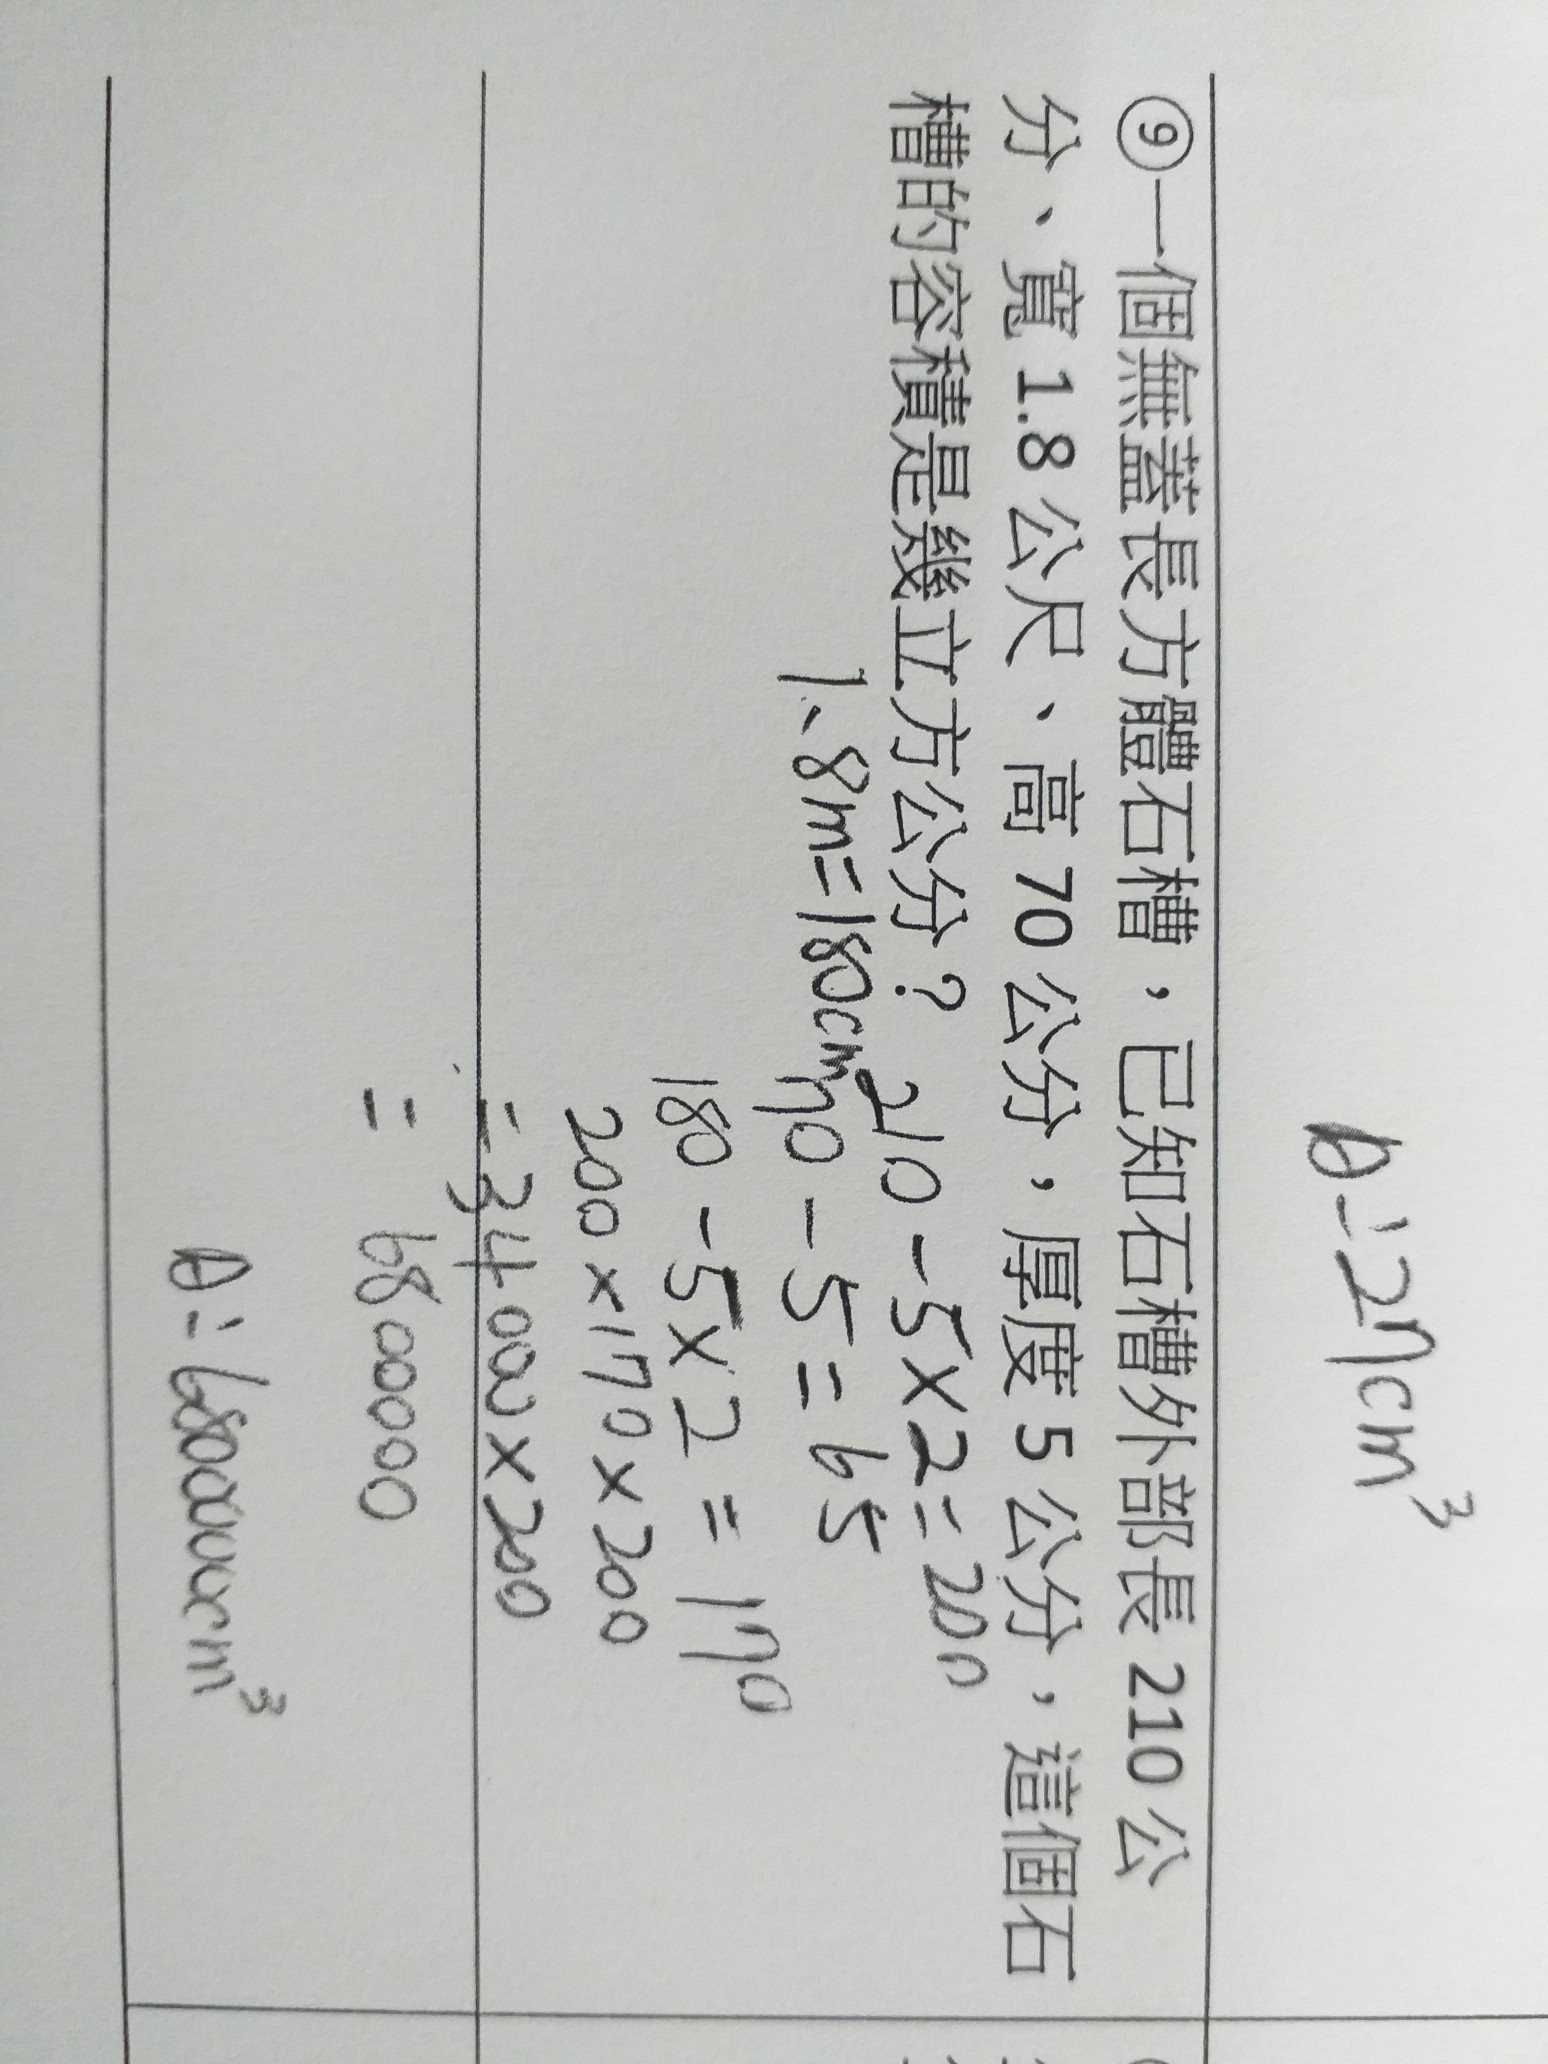 A：27cm³
⑨一個無蓋長方體石槽，已知石槽外部長 210 公
分、寬 1.8 公尺、高 70 公分，厚度 5 公分，這個石
槽的容積是幾立方公分？
1.8m=180cm
210-5×2=200
70-5=65
180-5×2=170
200×170×200
=34000×200
=6800000
A：6800000cm³